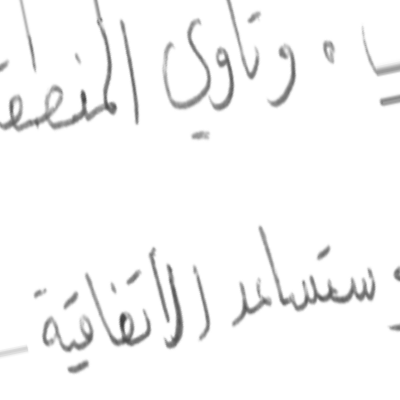 . وتأوي المنطقة
وستساعد الاتفاقية